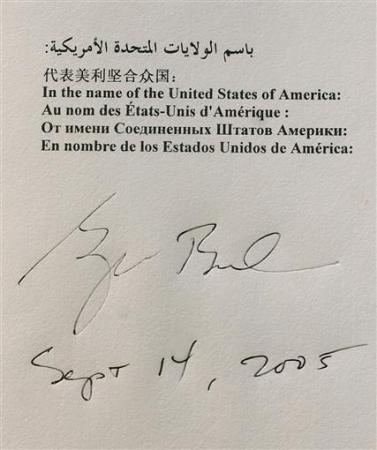 باسم الولايات المتحدة الأمريكية:
代表美利坚合众国：
In the name of the United States of America:
Au nom des États-Unis d'Amérique :
От имени Соединенных Штатов Америки:
En nombre de los Estados Unidos de América:
Sept 14, 2005